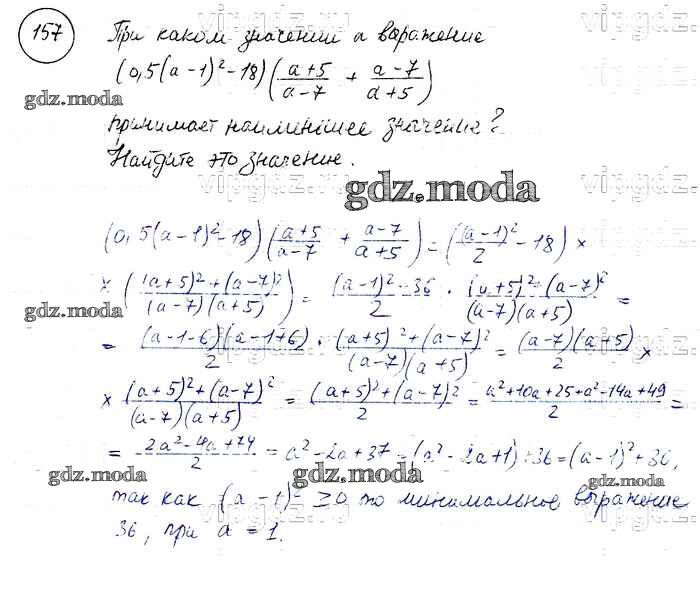 157 При каком значении a выражение
(0,5(a-1)²-18)(a+5/a-7 + a-7/a+5)
gdz.moda
принимает наименьшее значение?
Найдите это значение.
gdz.moda
(0,5(a-1)²-18)(a+5/a-7 + a-7/a+5) = ((a-1)²/2 - 18) ×
× ((a+5)²+(a-7)²/(a-7)(a+5)) = (a-1)²-36/2 · (a+5)²+(a-7)²/(a-7)(a+5) =
gdz.moda
= (a-1-6)(a-1+6)/2 · (a+5)²+(a-7)²/(a-7)(a+5) = (a-7)(a+5)/2 ×
× (a+5)²+(a-7)²/(a-7)(a+5) = (a+5)²+(a-7)²/2 = a²+10a+25+a²-14a+49/2 =
= 2a²-4a+74/2 = a²-2a+37 = (a²-2a+1)+36 = (a-1)²+36,
gdz.moda gdz.moda
так как (a-1)² ≥0 то минимальное выражение
36, при a = 1.
gdz.moda
vipgdz.ru